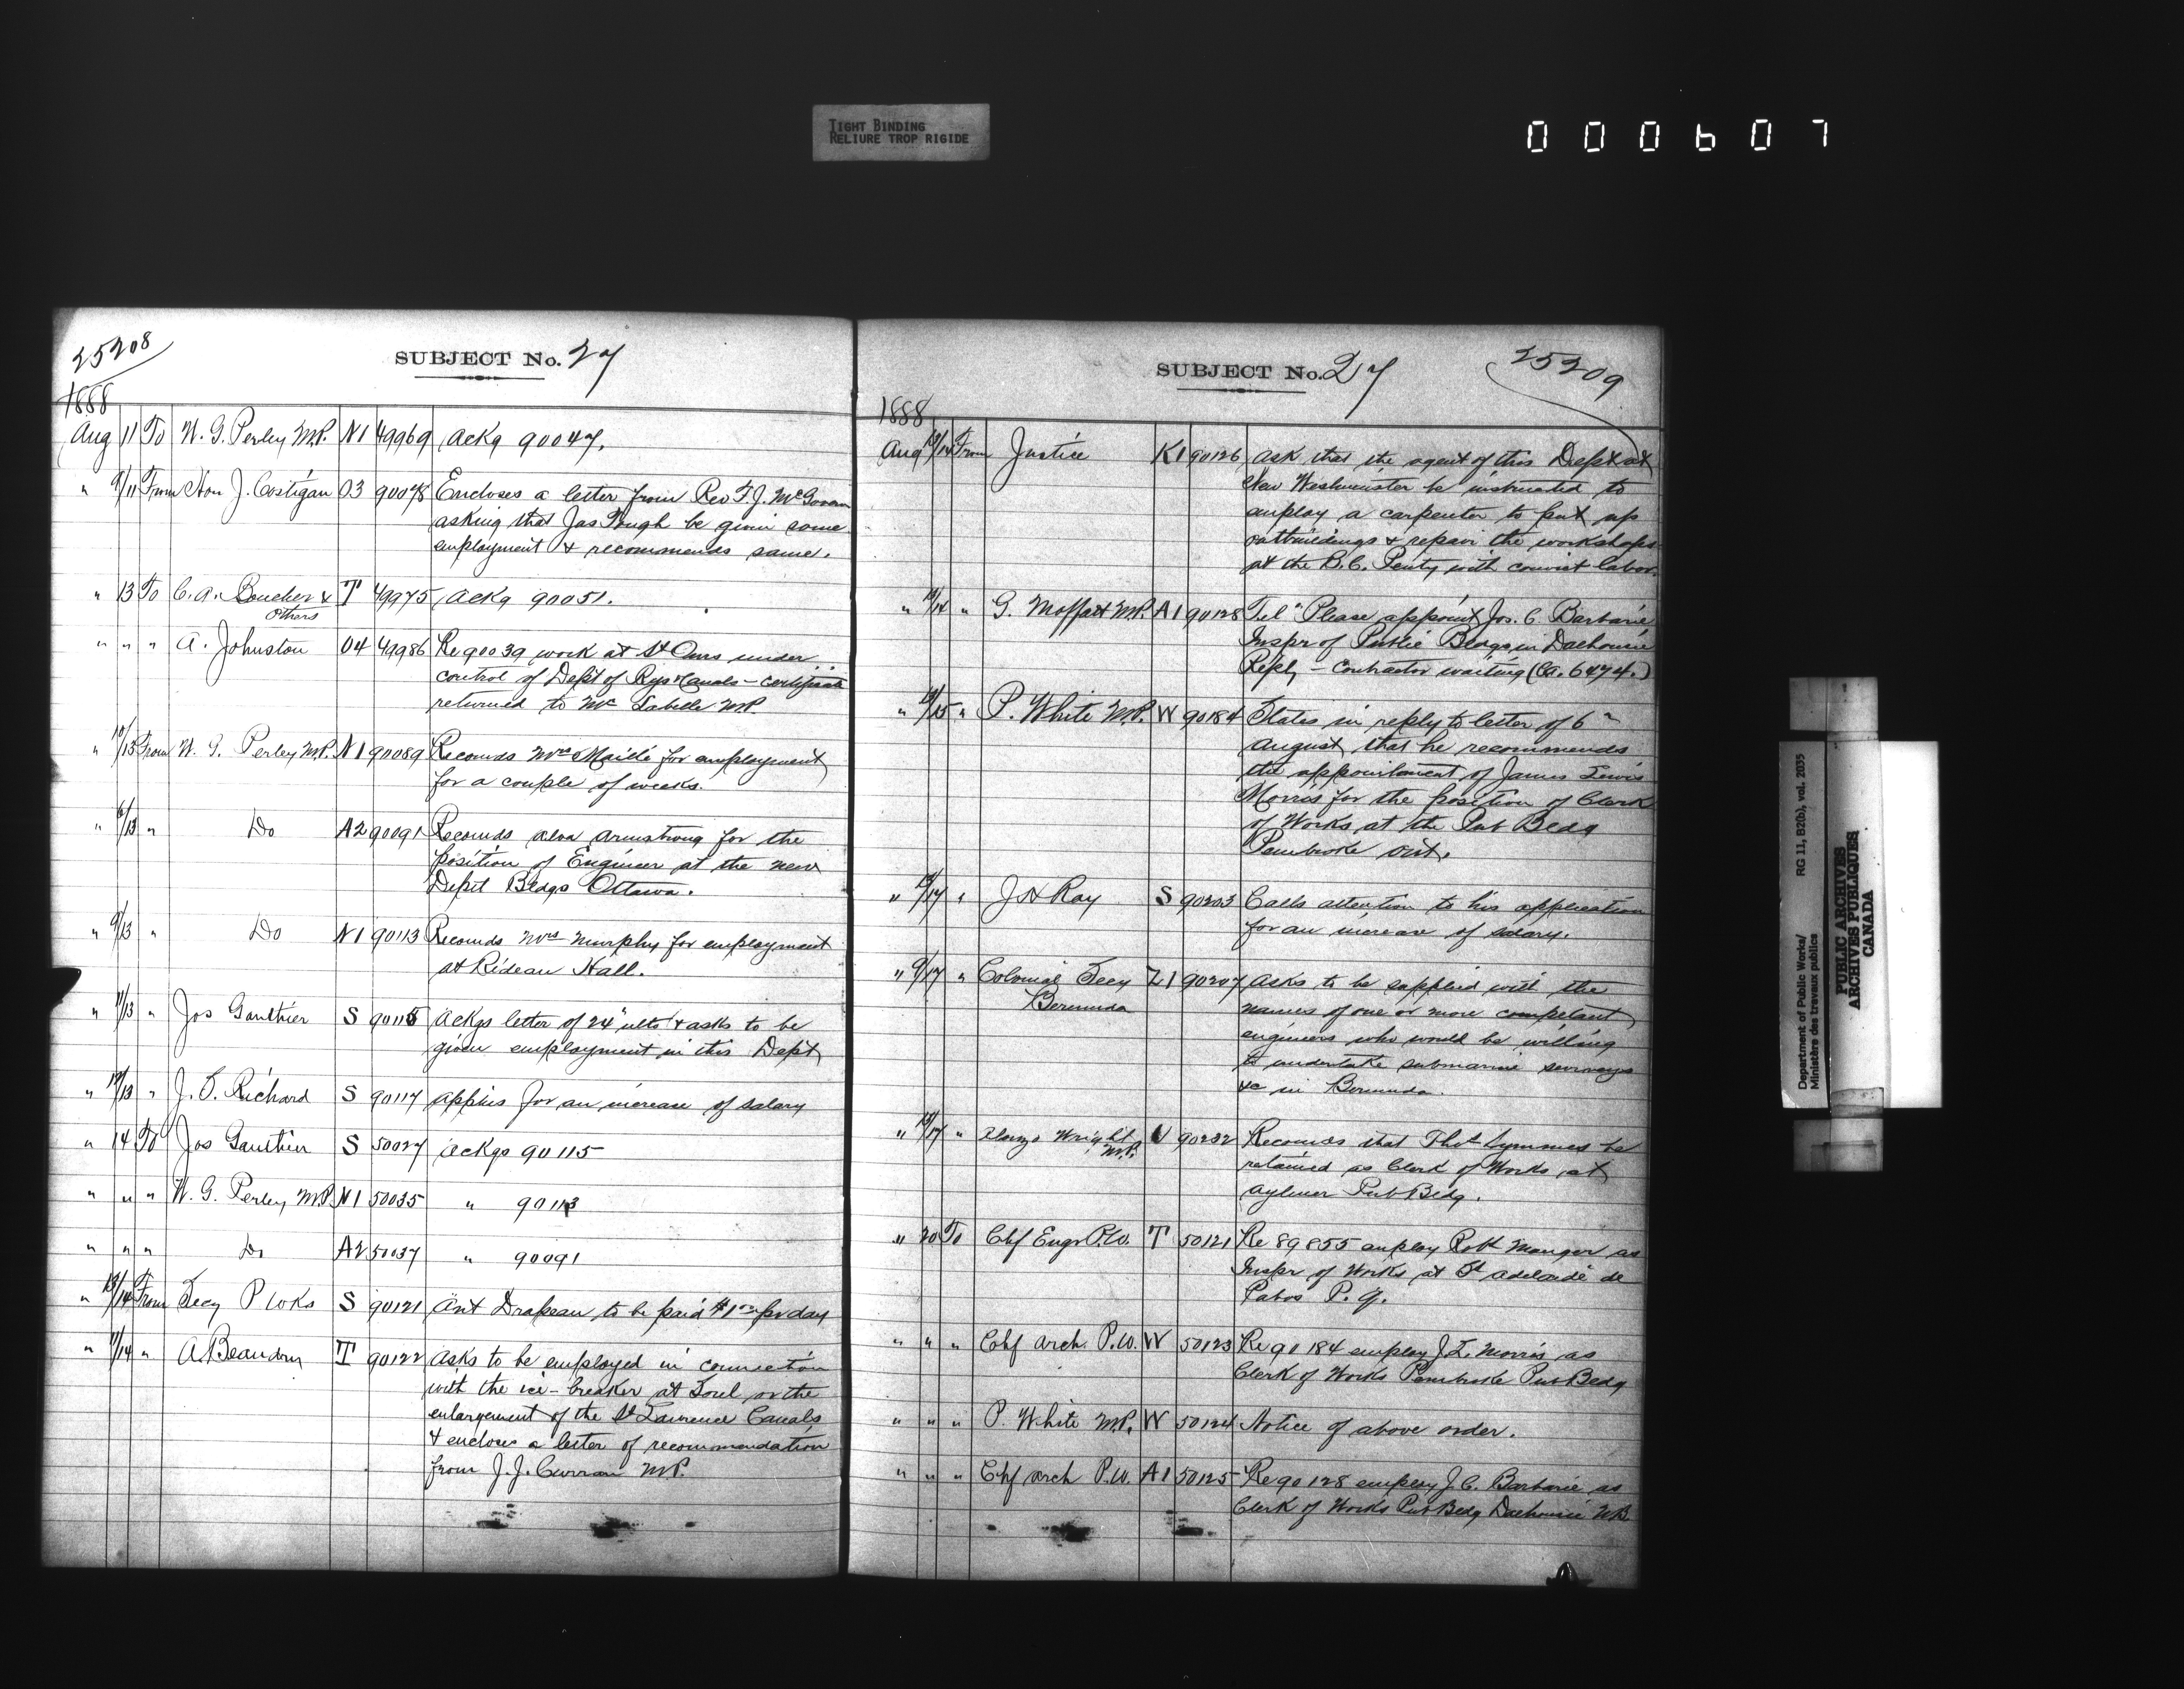 TIGHT BINDING
RELIURE TROP RIGIDE
000607
25208
SUBJECT No. 27
1888
Aug 11 To W. G. Perley M.P. N1 49969 Ackg 90047.
" 9/11 From Hon J. Costigan O3 90048 Encloses a letter from Rev T. J. McGovern
asking that Jas Pough be given some
employment & recommends same.
" 13 To C. A. Boucher & T 49975 Ackg 90051.
others
" " " A. Johnston O4 49986 Re 90039 work at St Ours under
control of Dept of Rys & Canals - certificate
returned to Mr Labelle M.P.
" 10/13 From W. G. Perley M.P. N1 90089 Recomds Mrs Maillé for employment
for a couple of weeks.
" 6/13 " Do A2 90091 Recomds Alva Armstrong for the
position of Engineer at the new
Deptl Bldgs Ottawa.
" 9/13 " Do N1 90113 Recomds Mrs Murphy for employment
at Rideau Hall.
" 11/13 " Jos Gauthier S 90115 Ackgs letter of 24" ulto & asks to be
given employment in this Dept
" 12/13 " J. O. Richard S 90117 applies for an increase of salary
" 14 To Jos Gauthier S 50027 Ackgs 90115
" " " W. G. Perley M.P. N1 50035 " 90113
" " " Do A2 50037 " 90091
" 13/14 From Secy P Wks S 90121 Ant Drapeau to be paid $1 per day
" 11/14 " A. Beaudry T 90122 Asks to be employed in connection
with the ice-breaker at Sorel or the
enlargement of the St Lawrence Canals
& encloses a letter of recommendation
from J. J. Curran M.P.
SUBJECT No. 27
25209
1888
Aug 13/14 From Justice K1 90126 Ask that the agent of this Dept at
New Westminster be instructed to
employ a carpenter to put up
outbuildings & repair the workshops
at the B.C. Penty with convict labor.
" 13/14 " G. Moffatt M.P. A1 90128 Tel "Please appoint Jos. C. Barbarie
Inspr of Public Bldgs in Dalhousie
Reply - Contractor waiting (Ca. 6474.)
" 13/15 " P. White M.P. W 90184 States in reply to letter of 6"
August, that he recommends
the appointment of James Lewis
Morris for the position of Clerk
of Works at the Pub Bldg
Pembroke Ont.
" 15/17 " J H Ray S 90203 Calls attention to his application
for an increase of salary.
" 9/17 " Colonial Secy Z1 90207 Asks to be supplied with the
Bermuda names of one or more competent
engineers who would be willing
to undertake submarine surveys
&c in Bermuda.
" 15/17 " Alonzo Wright M.P. V 90232 Recomds that Thos Symmes be
retained as Clerk of Works at
Aylmer Pub Bldg.
" 20 To Chf Engr P.W. T 50121 Re 89855 employ Robt Manger as
Inspr of Works at St Adelaide de
Pabos P.Q.
" " " Chf Arch P.W. W 50123 Re 90184 employ J. L. Morris as
Clerk of Works Pembroke Pub Bldg
" " " P. White M.P. W 50124 Notice of above order.
" " " Chf Arch P.W. A1 50125 Re 90128 employ J. C. Barbarie as
Clerk of Works Pub Bldg Dalhousie NB
Department of Public Works/ RG 11, B2(b), vol. 2035
Ministère des travaux publics
PUBLIC ARCHIVES
ARCHIVES PUBLIQUES
CANADA